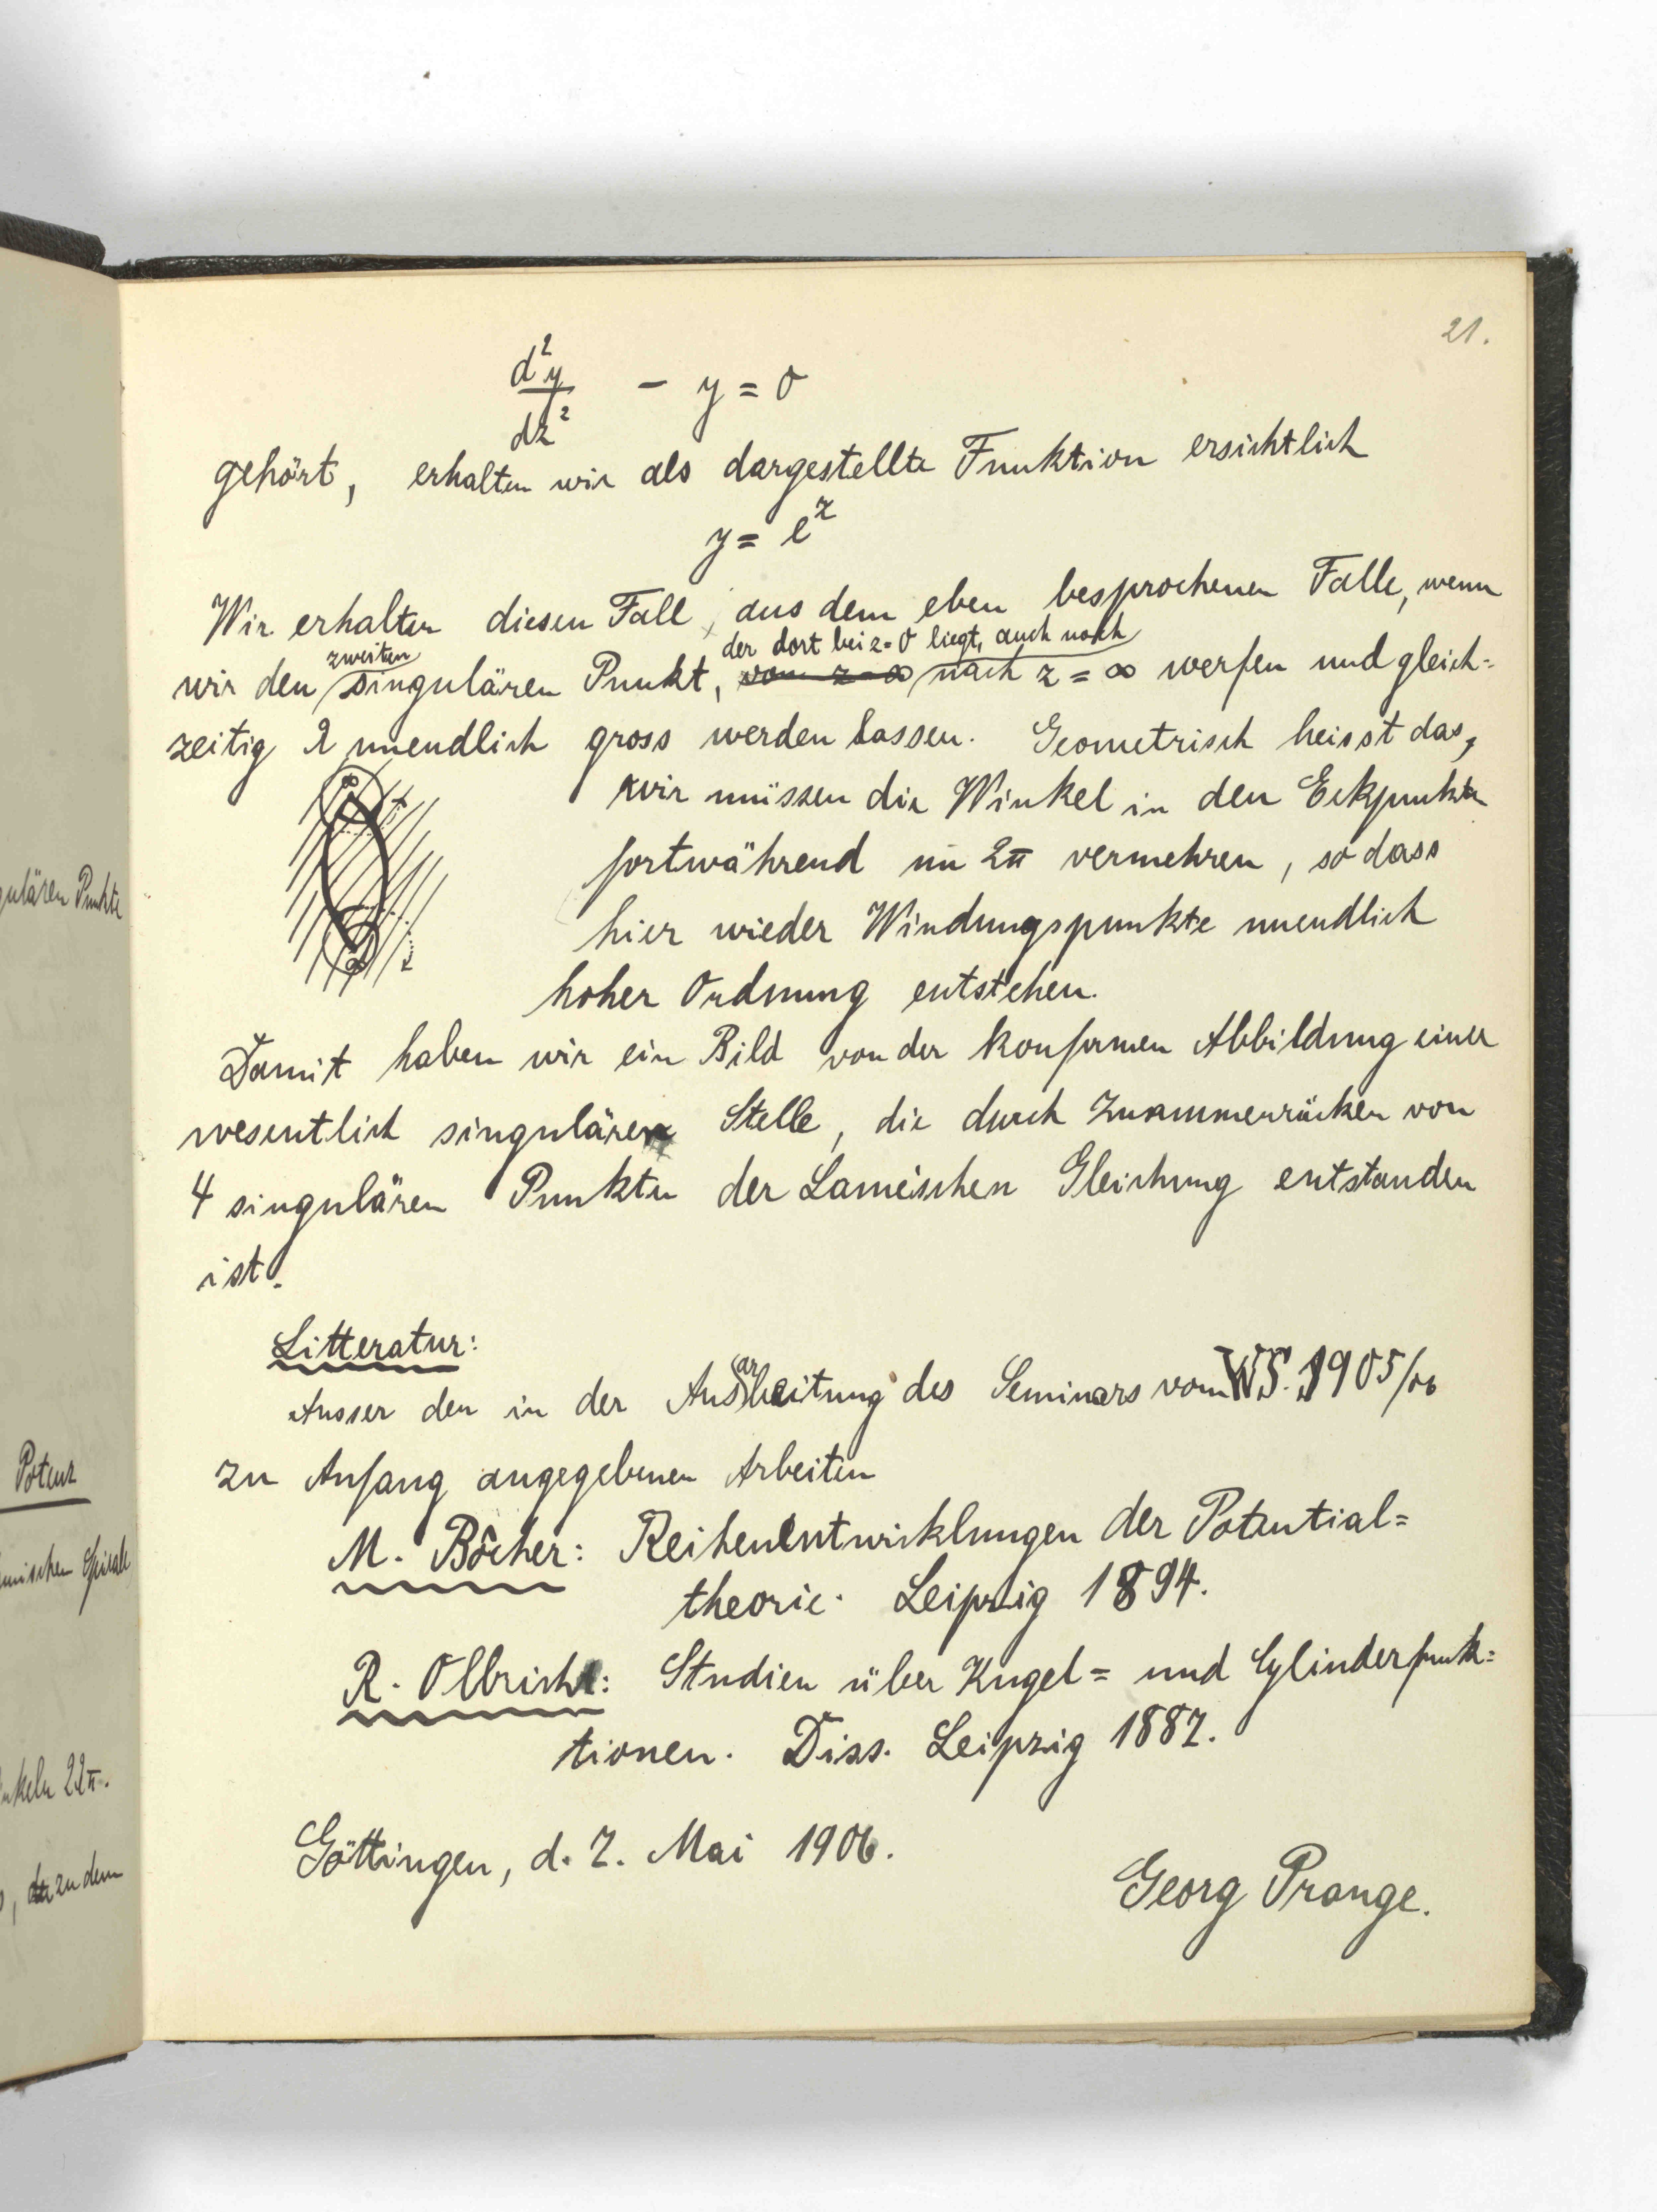 21.
d²y/dz² - y = 0
gehört, erhalten wir als dargestellte Funktion ersichtlich
y = e^z
Wir erhalten diesen Fall, aus dem eben besprochenen Falle, wenn
der dort bei z=0 liegt, auch noch
zweiten
wir den singulären Punkt, nach z = ∞ werfen und gleich=
zeitig λ unendlich gross werden lassen. Geometrisch heisst das,
wir müssen die Winkel in den Eckpunkten
fortwährend um 2π vermehren, so dass
hier wieder Windungspunkte unendlich
hoher Ordnung entstehen.
∞
∞
Damit haben wir ein Bild von der konformen Abbildung einer
wesentlich singulären Stelle, die durch Zusammenrücken von
4 singulären Punkten der Laméischen Gleichung entstanden
ist.
Litteratur:
Ausser den in der Ausarbeitung des Seminars vom WS. 1905/06
zu Anfang angegebenen Arbeiten
M. Bôcher: Reihenentwicklungen der Potential=
theorie. Leipzig 1894.
R. Olbricht: Studien über Kugel= und Cylinderfunk=
tionen. Diss. Leipzig 1887.
Göttingen, d. 7. Mai 1906.
Georg Prange.
gulären Punkte
Potenz
Spirale
nkeln 2λπ.
, zu dem